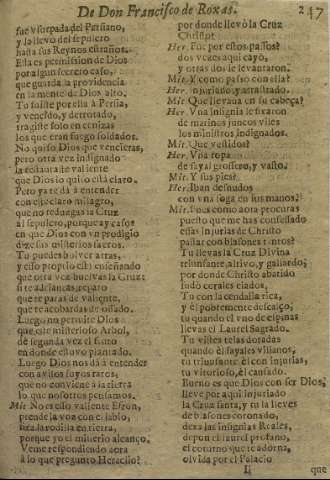 De Don Francisco de Roxas. 247
fue vsurpada del Persiano,
y la llevò del sepulcro
hasta sus Reynos estraños.
Ella es permission de Dios
por algun secreto caso,
que guarda la providencia
en la mente de Dios alto.
Tu fuiste por ella à Persia,
y vencido, y derrotado,
tragiste solo en cenizas
los que eran fuego soldados.
No quiso Dios que vencieras,
pero otra vez indignado
la restauraste valiente
que Dios lo quiso està claro.
Pero ya te dà à entender
con este claro milagro,
que no reduzgas la Cruz
al sepulcro, porque ay casos
en que Dios con vn prodigio
dize sus misterios sacros.
Tu puedes bolver atras,
y esso propio està enseñando
que otra vez buelvas la Cruz:
si te adelantas, reparo
que te paras de valiente,
que te acobardas de osado.
Luego no permite Dios
que este misterioso Arbol,
de segunda vez el fruto
en donde estuvo plantado.
Luego Dios nos dà à entender
con avisos suyos raros,
que no conviene à la tierra
lo que nosotros pensamos.
Mit. No es esso valiente Efron,
prende la voz con el labio,
hiza la rodilla en tierra,
porque yo el misterio alcanço.
Veme respondiendo aora
à lo que pregunto Heraclio?
por donde llevò la Cruz
Christo?
Her. Fue por estos passos?
dos vezes aqui cayò,
y otras dos le levantaron.
Mit. Y como passò con ella?
Her. Injuriado, y arrastrado.
Mit. Que llevaua en su cabeça?
Her. Vna insignia le texeron
de marinos juncos viles
los ministros indignados.
Mit. Que vestidos?
Her. Vna ropa
de sayal grossero, y vasto.
Mit. Y sus pies?
Her. Iban desnudos
con vna soga en sus manos?
Mit. Pues como aora procuras
puesto que me has confessado
essas injurias de Christo
passar con blasones tantos?
Tu llevas la Cruz Divina
triunfante, altivo, y gallardo;
por donde Christo abatido
sudò corales elados,
Tu con la condalia rica,
y èl pobremente descalço;
tu quando el vno de espinas
llevas el Laurel Sagrado.
Tu vistes telas doradas
quando èl sayales villanos,
tu triunfante, èl con injurias,
tu vitorioso, èl cansado.
Bueno es que Dios con ser Dios,
lleve por aqui injuriado
la Cruz santa, y tu la lleves
de blasones coronado,
dexa las insignias Reales,
depon el laurel profano,
el contorno que te adorna,
olvida por el Palacio
Ii que